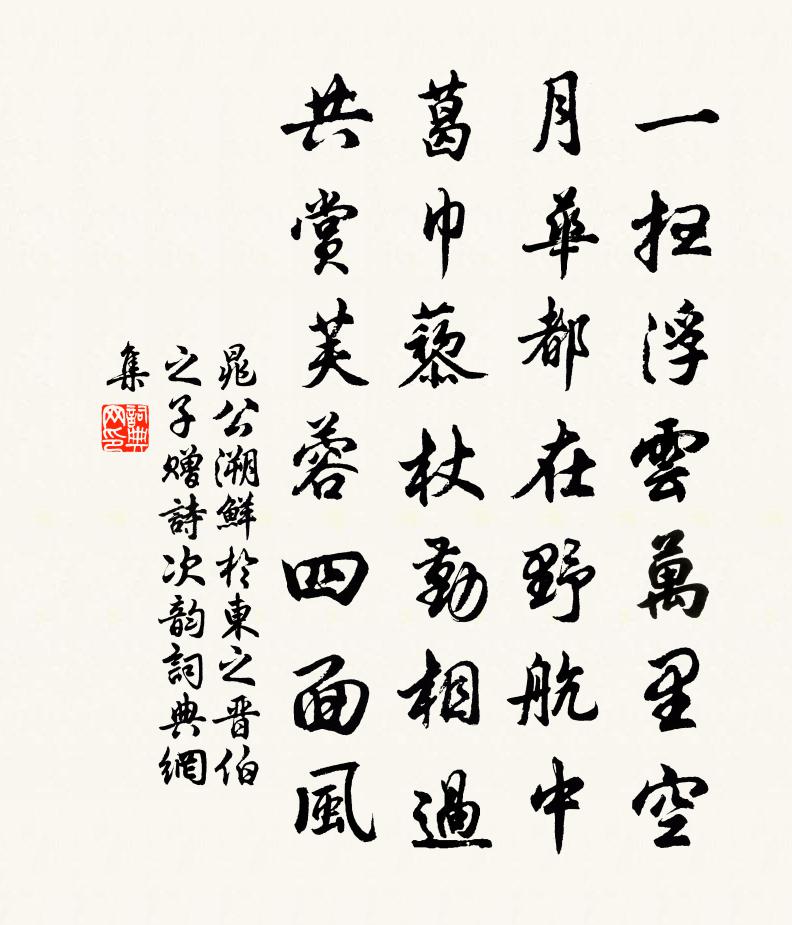 一掃浮雲萬里空
月華都在野航中
葛巾藜杖勤相過
共賞芙蓉四面風
晁公溯鮮於東之晋伯
之子贈詩次韵詞典網
集
詞典网印